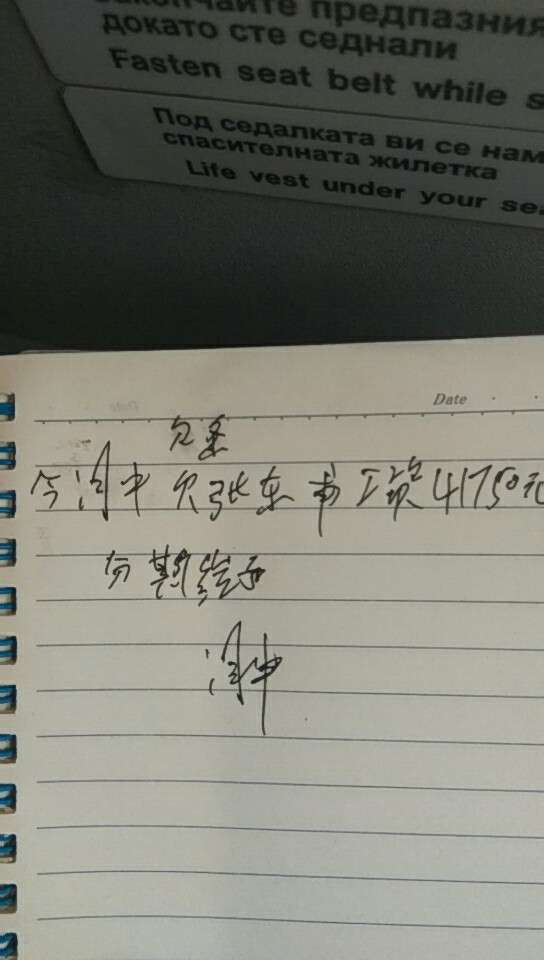 закопчайте предпазния
докато сте седнали
Fasten seat belt while s
Под седалката ви се нам
спасителната жилетка
Life vest under your sea
Date
欠条
今 中欠张东 工资41750元
分期给予